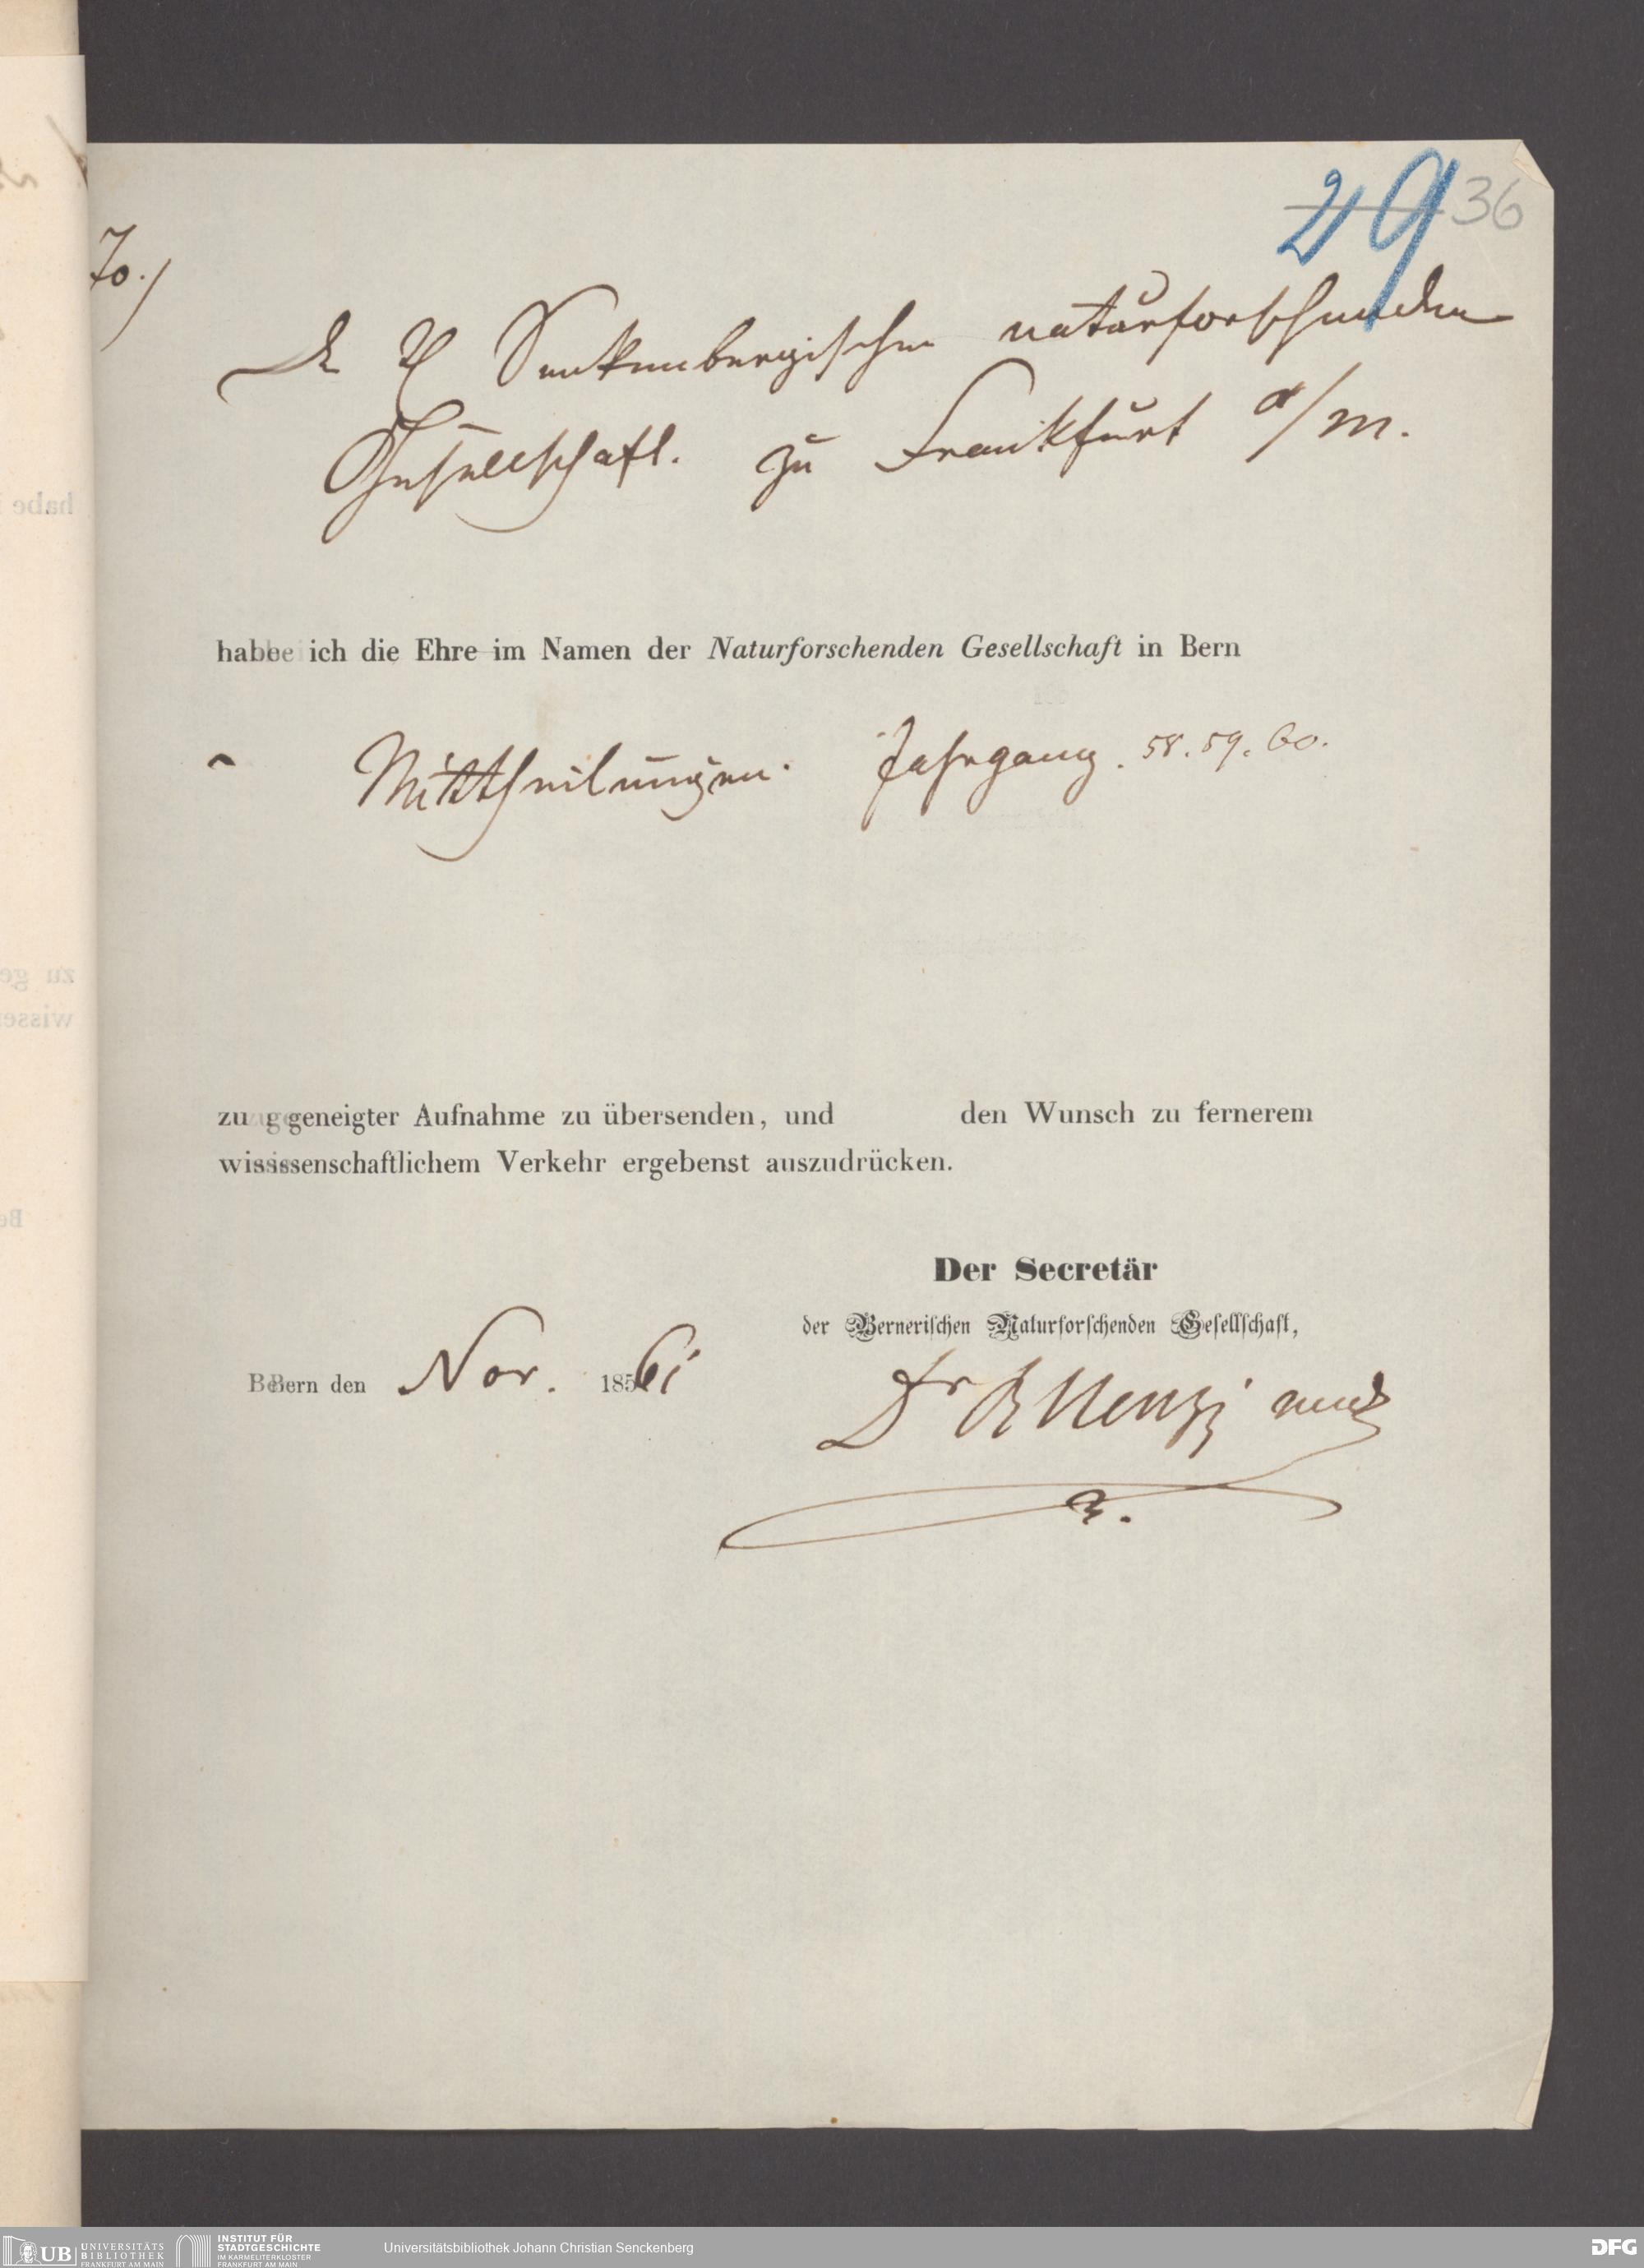 29 36
70.)
Senkenbergischen naturforschenden
Gesellschaft. zu Frankfurt a/m.
habe ich die Ehre im Namen der Naturforschenden Gesellschaft in Bern
Mittheilungen. Jahrgang. 58. 59. 60.
zu geneigter Aufnahme zu übersenden, und den Wunsch zu fernerem
wissenschaftlichem Verkehr ergebenst auszudrücken.
Der Secretär
der Bernerischen Naturforschenden Gesellschaft,
Bern den Nov. 1861
Dr R Henzi
habe
zu ge
wisse
Be
UB UNIVERSITÄTS
BIBLIOTHEK
FRANKFURT AM MAIN
INSTITUT FÜR
STADTGESCHICHTE
IM KARMELITERKLOSTER
FRANKFURT AM MAIN
Universitätsbibliothek Johann Christian Senckenberg
DFG